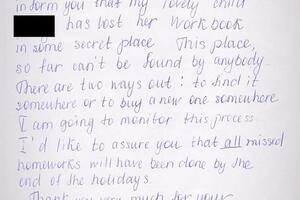 inform you that my lovely child
has lost her workbook
in some secret place This place,
so far can't be found by anybody.
There are two ways out: to find it
somewhere or to buy a new one somewhere
I am going to monitor this process.
I'd like to assure you that all missed
homeworks will have been done by the
end of the holidays.
Thank you very much for your